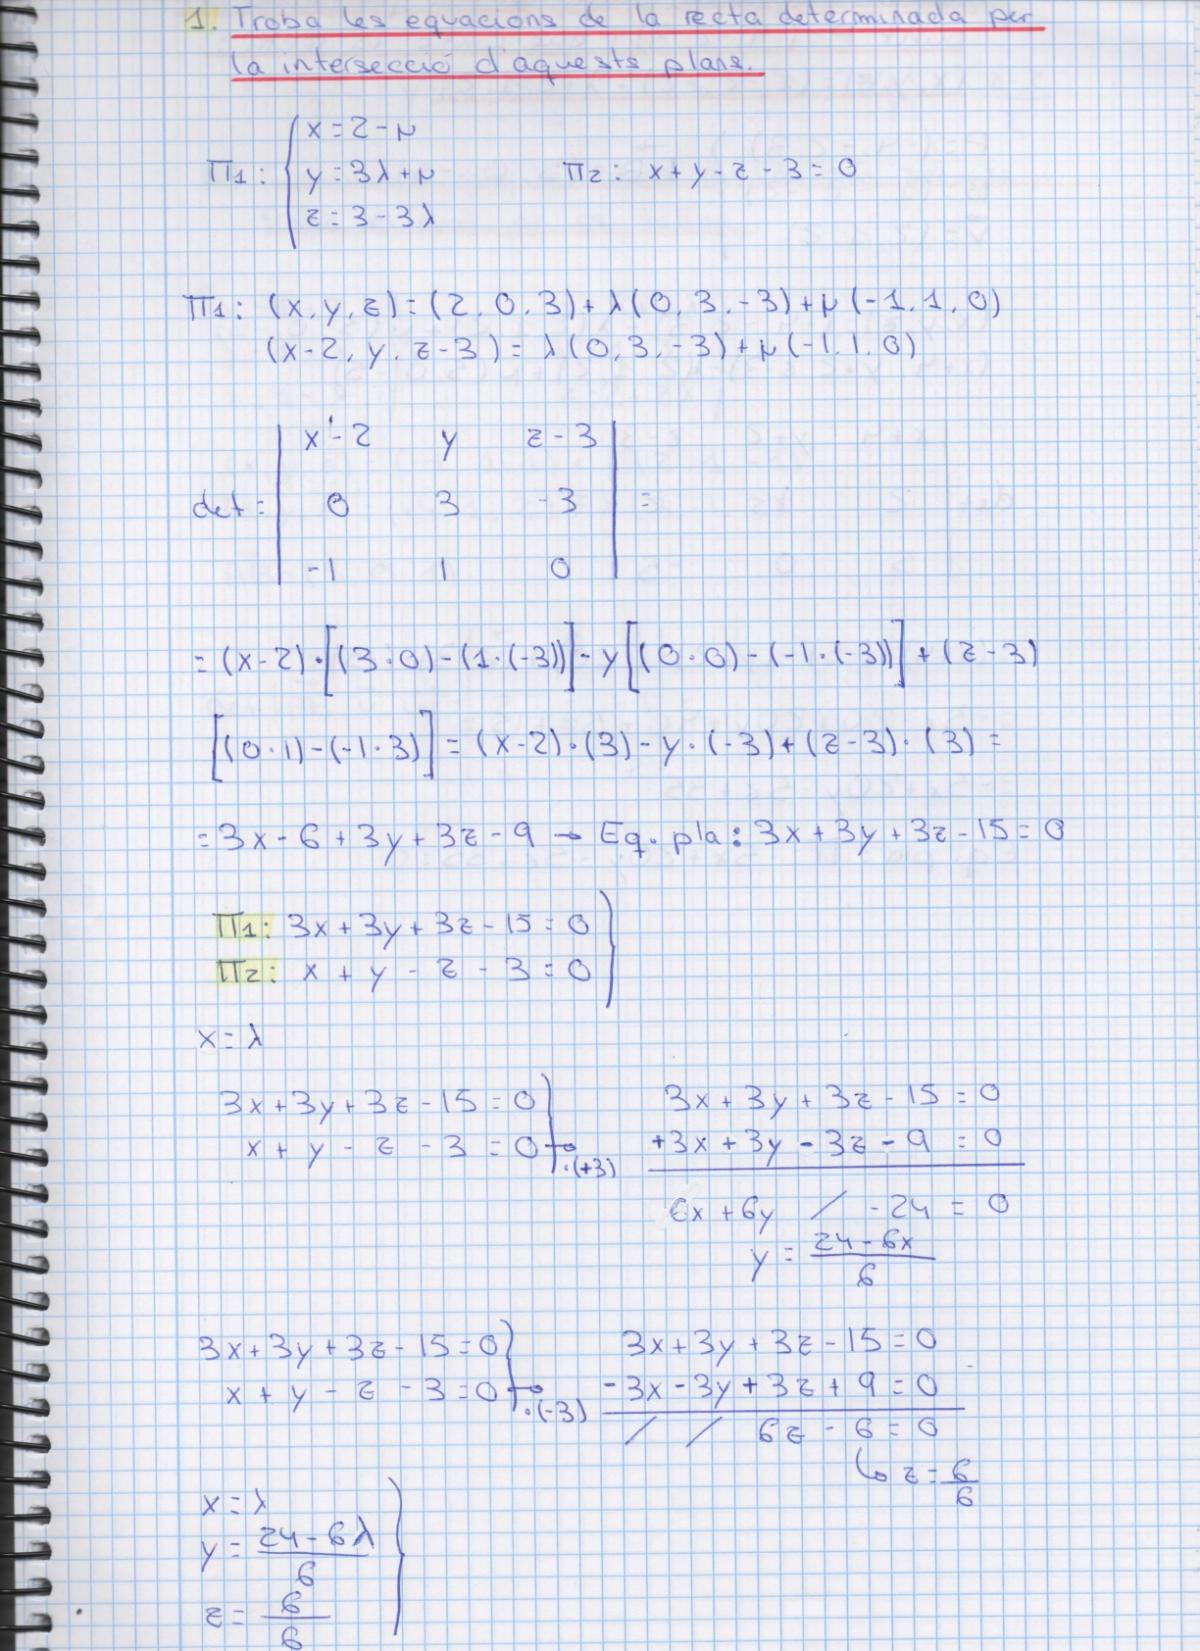 1. Troba les equacions de la recta determinada per
la intersecció d'aquests plans.
Π1: { x = 2 - μ
y = 3λ + μ
z = 3 - 3λ
Π2: x + y - z - 3 = 0
Π1: (x, y, z) = (2, 0, 3) + λ(0, 3, -3) + μ(-1, 1, 0)
(x-2, y, z-3) = λ(0, 3, -3) + μ(-1, 1, 0)
det = | x-2 y z-3 |
| 0 3 -3 | =
| -1 1 0 |
= (x-2)·[(3·0)-(1·(-3))] - y[(0·0)-(-1·(-3))] + (z-3)
[(0·1)-(-1·3)] = (x-2)·(3) - y·(-3) + (z-3)·(3) =
= 3x - 6 + 3y + 3z - 9 → Eq. pla: 3x + 3y + 3z - 15 = 0
Π1: 3x + 3y + 3z - 15 = 0
Π2: x + y - z - 3 = 0
x = λ
3x + 3y + 3z - 15 = 0
x + y - z - 3 = 0 → ·(+3)
3x + 3y + 3z - 15 = 0
+3x + 3y - 3z - 9 = 0
6x + 6y / - 24 = 0
y = 24 - 6x / 6
3x + 3y + 3z - 15 = 0
x + y - z - 3 = 0 → ·(-3)
3x + 3y + 3z - 15 = 0
-3x - 3y + 3z + 9 = 0
/ / 6z - 6 = 0
↳ z = 6/6
x = λ
y = 24 - 6λ / 6
z = 6/6